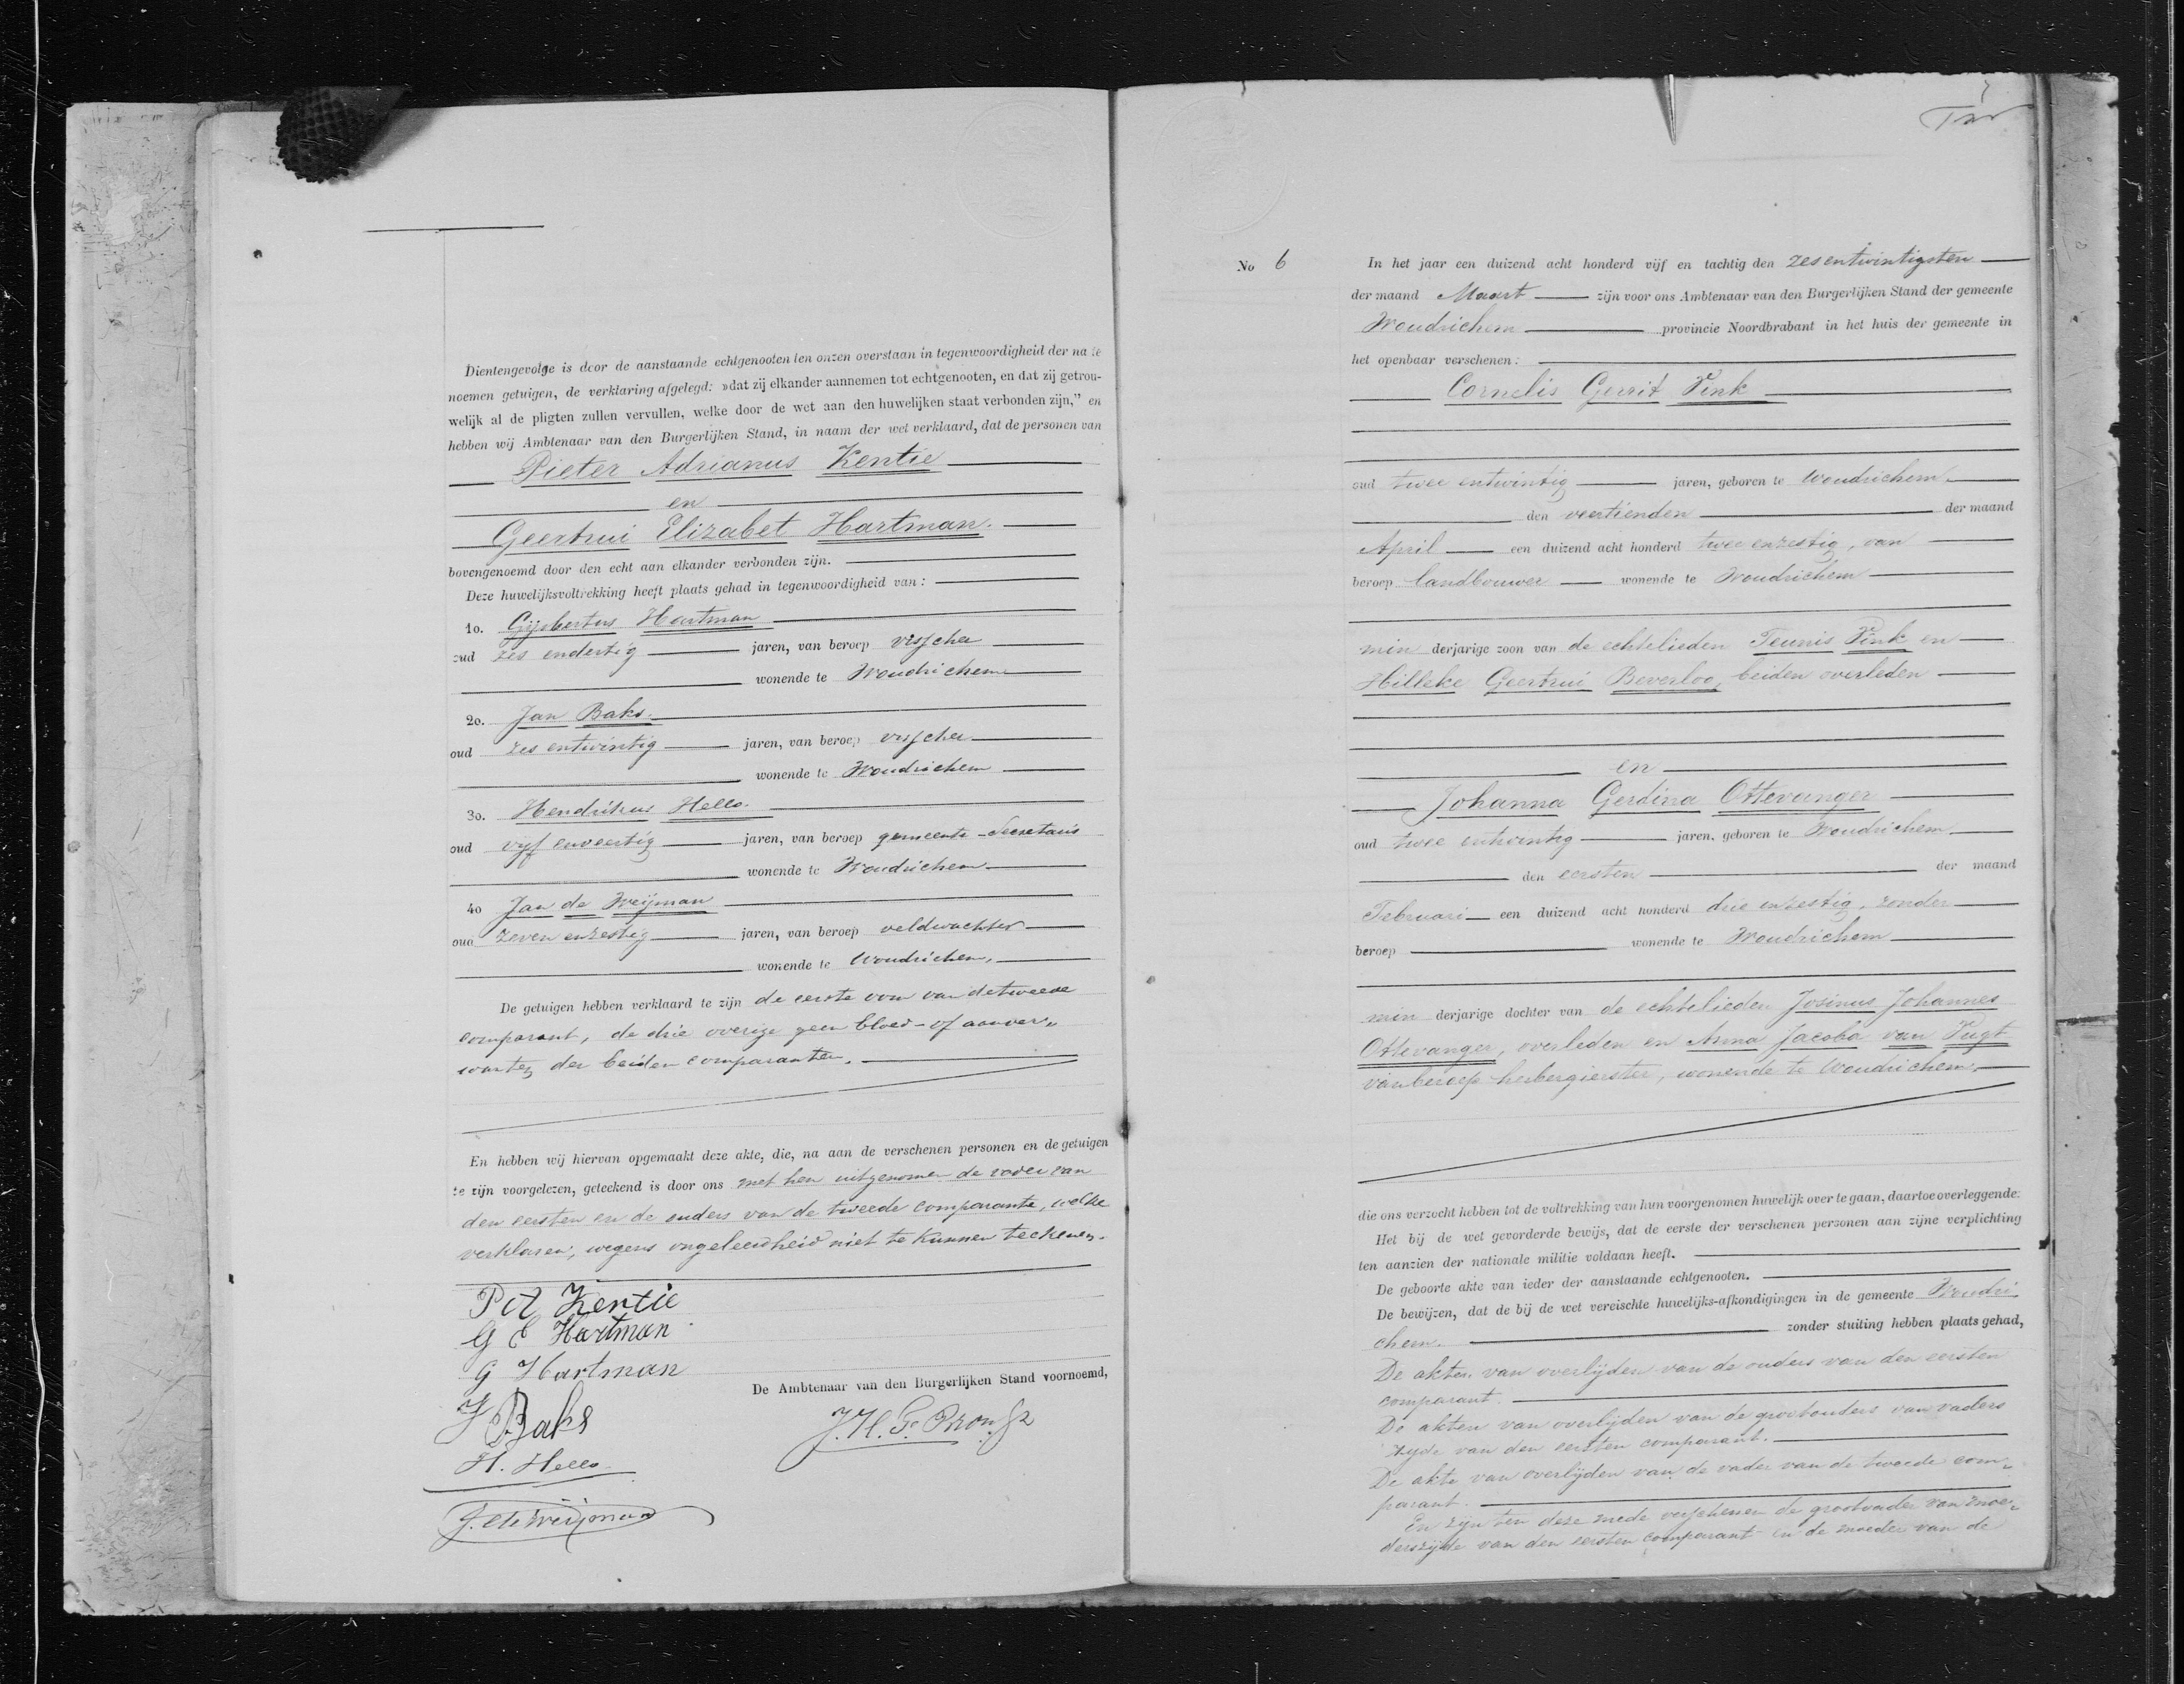 Dientengevolge is door de aanstaande echtgenooten ten onzen overstaan in tegenwoordigheid der na te
noemen getuigen, de verklaring afgelegd: »dat zij elkander aannemen tot echtgenooten, en dat zij getrou-
welijk al de pligten zullen vervullen, welke door de wet aan den huwelijken staat verbonden zijn," en
hebben wij Ambtenaar van den Burgerlijken Stand, in naam der wet verklaard, dat de personen van
Pieter Adrianus Kentie
en
Geertrui Elizabet Hartman.
bovengenoemd door den echt aan elkander verbonden zijn.
Deze huwelijksvoltrekking heeft plaats gehad in tegenwoordigheid van:
1o. Gijsbertus Hartman
oud zes endertig jaren, van beroep visscher
wonende te Woudrichem
2o. Jan Baks.
oud zes entwintig jaren, van beroep visscher
wonende te Woudrichem
3o. Hendrikus Hello.
oud vijf enveertig jaren, van beroep gemeente-Secretaris
wonende te Woudrichem
4o Jan de Weijman
oud zeven enzestig jaren, van beroep veldwachter
wonende te Woudrichem,
De getuigen hebben verklaard te zijn de eerste oom van de tweede
comparant, de drie overige geen bloed- of aanver„
wanten der beiden comparanten.
En hebben wij hiervan opgemaakt deze akte, die, na aan de verschenen personen en de getuigen
te zijn voorgelezen, geteekend is door ons met hen uitgenomen de vader van
den eersten en de ouders van de tweede comparante, welke
verklaren, wegens ongeleerdheid niet te kunnen teekenen.
P A Kentie
G E Hartman
G Hartman
J Baks
De Ambtenaar van den Burgerlijken Stand voornoemd,
H. Hello
J. de Weijman
No 6
In het jaar een duizend acht honderd vijf en tachtig den zesentwintigsten
der maand Maart zijn voor ons Ambtenaar van den Burgerlijken Stand der gemeente
Woudrichem provincie Noordbrabant in het huis der gemeente in
het openbaar verschenen:
Cornelis Gerrit Vink
oud twee entwintig jaren, geboren te Woudrichem
den veertienden der maand
April een duizend acht honderd twee enzestig, van
beroep landbouwer wonende te Woudrichem
min derjarige zoon van de echtelieden Teunis Vink en
Hilleke Geertrui Beverloo, beiden overleden
en
Johanna Gerdina Ottevanger
oud twee entwintig jaren, geboren te Woudrichem
den eersten der maand
Februari een duizend acht honderd drie enzestig, zonder
beroep wonende te Woudrichem
min derjarige dochter van de echtelieden Josinus Johannes
Ottevanger, overleden en Anna Jacoba van Vugt
van beroep herbergierster, wonende te Woudrichem,
die ons verzocht hebben tot de voltrekking van hun voorgenomen huwelijk over te gaan, daartoe overleggende:
Het bij de wet gevorderde bewijs, dat de eerste der verschenen personen aan zijne verplichting
ten aanzien der nationale militie voldaan heeft.
De geboorte akte van ieder der aanstaande echtgenooten.
De bewijzen, dat de bij de wet vereischte huwelijks-afkondigingen in de gemeente Woudri
chem. zonder stuiting hebben plaats gehad,
De akten van overlijden van de ouders van den eersten
comparant.
De akten van overlijden van de grootouders van vaders
zijde van den eersten comparant.
De akte van overlijden van de vader van de tweede com„
parant.
En zijn ten deze mede verschenen de grootvader van moe„
derszijde van den eersten comparant en de moeder van de